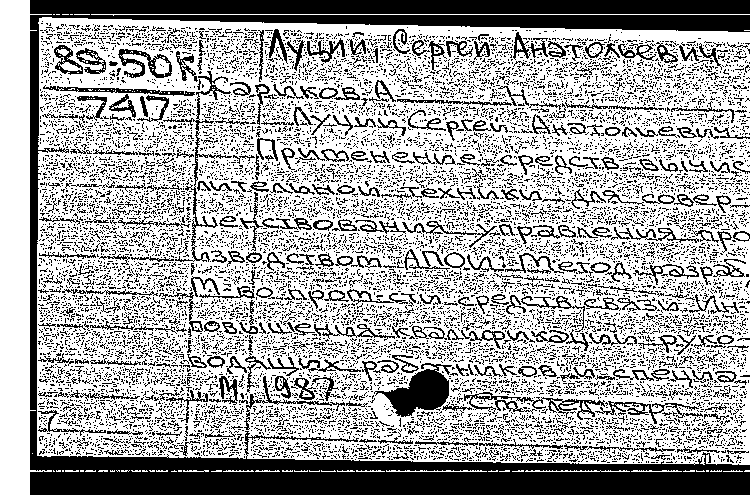 Луций, Сергей Анатольевич
89-50К
7417
Жариков, А Н
Луций, Сергей Анатольевич
Применение средств вычис
лительной техники для совер-
шенствования управления про
изводством АПОИ: Метод. разраб,
М-во пром-сти средств связи. Ин-
повышения квалификации руко-
водящих работников и специа-
М., 1987
См след карт